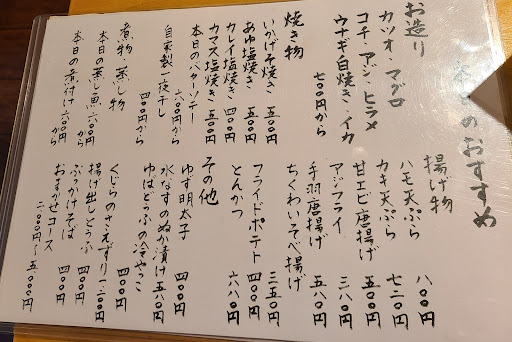 本日のおすすめ
お造り
カツオ・マグロ
コチ・アジ・ヒラメ
ウナギ白焼き・イカ
七〇〇円から
焼き物
いかげそ焼き 五〇〇円
あゆ塩焼き 五〇〇円
カレイ塩焼き 四〇〇円
カマス塩焼き 五〇〇円
本日のバターソテー
六〇〇円から
自家製一夜干し
四〇〇円から
煮物・蒸し物
本日の蒸し魚 六〇〇円から
本日の煮付け 六〇〇円から
揚げ物
ハモ天ぷら 八〇〇円
カキ天ぷら 七二〇円
甘エビ唐揚げ 五〇〇円
アジフライ 三八〇円
手羽唐揚げ 五八〇円
ちくわいそべ揚げ
三五〇円
フライドポテト 四〇〇円
とんかつ 六八〇円
その他
ゆず明太子 四〇〇円
水なすのぬか漬け 五八〇円
ゆばどうふの冷やっこ
四〇〇円
くじらのさえずり 一二〇〇円
揚げ出しどうふ 四〇〇円
ぶっかけそば 四〇〇円
おまかせコース
二〇〇〇円〜五〇〇〇円